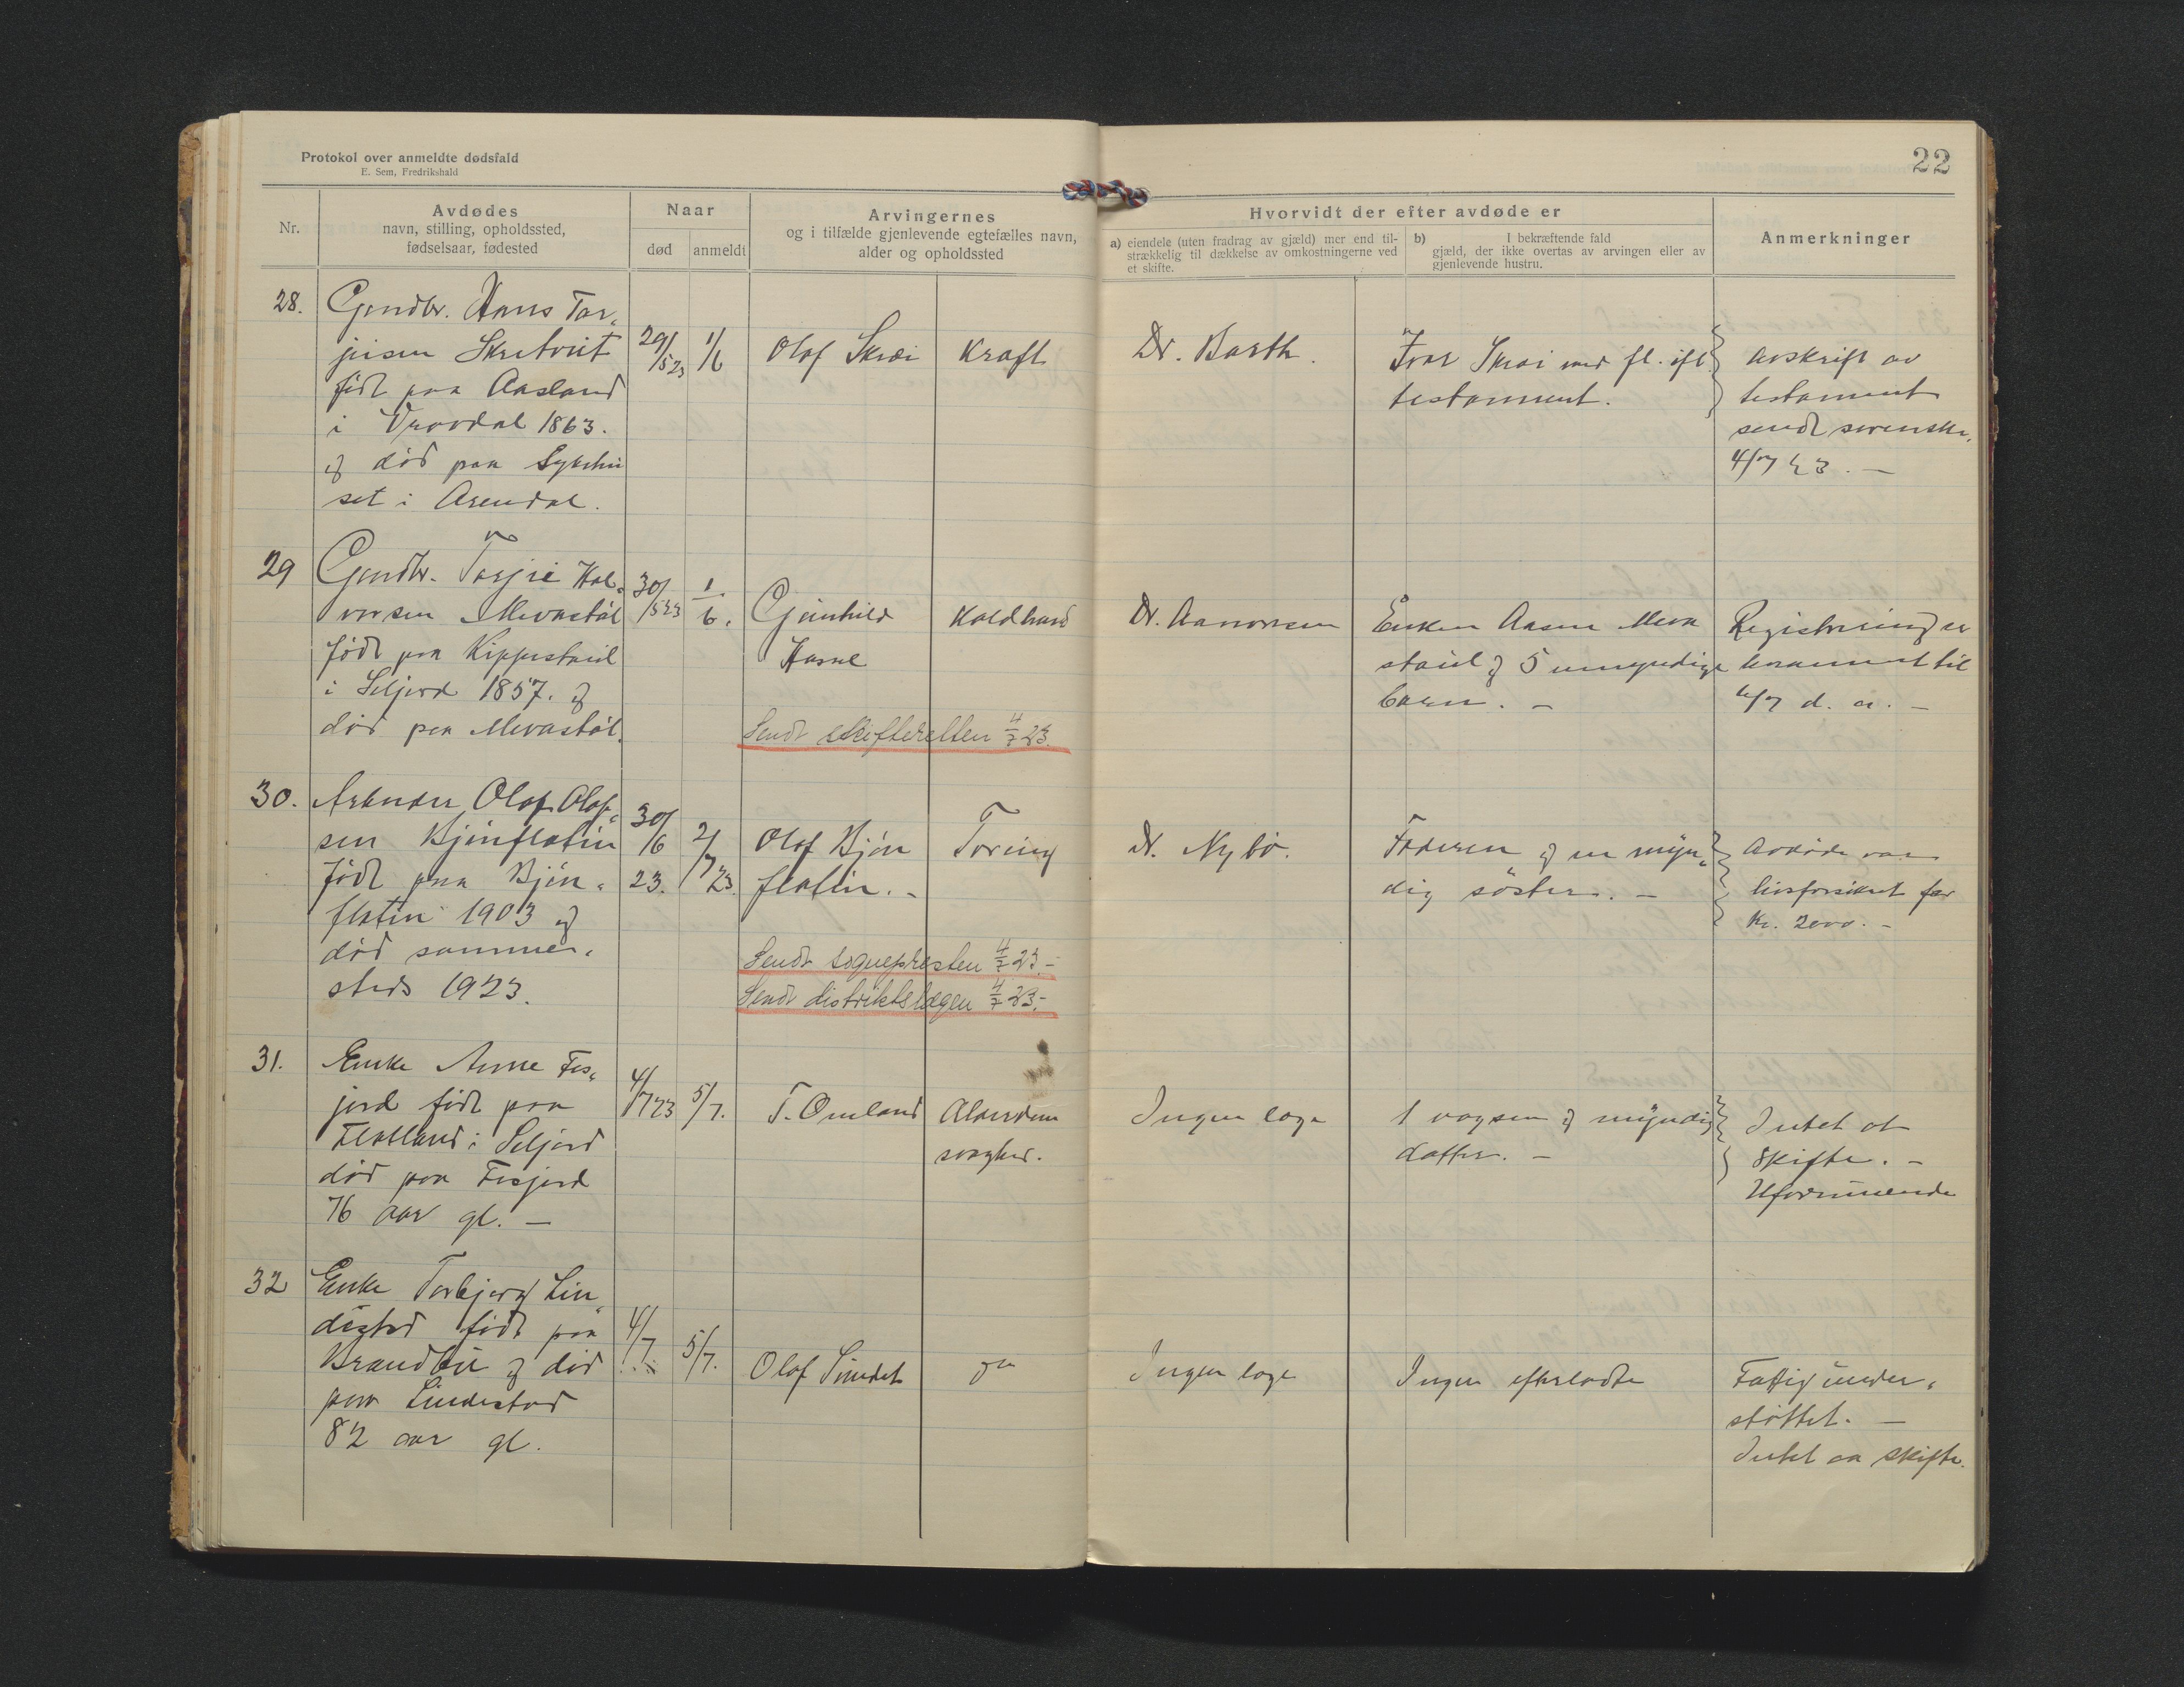 Protokol over anmeldte dødsfald
E. Sem, Fredrikshald
22
Nr.
Avdødes
navn, stilling, opholdssted,
fødselsaar, fødested
Naar
død
anmeldt
Arvingernes
og i tilfælde gjenlevende egtefælles navn,
alder og opholdssted
Hvorvidt der efter avdøde er
a) eiendele (uten fradrag av gjæld) mer end til-
strækkelig til dækkelse av omkostningerne ved
et skifte.
b) I bekræftende fald
gjæld, der ikke overtas av arvingen eller av
gjenlevende hustru.
Anmerkninger
28.
Hans Tar„
jeisen
født paa Aasland
i Vraadal 1863.
og død paa Sykehu
set i Arendal.
29/5 23
1/6
Olaf Skrei
Kraft
Dr. Barth.
Ivar Skrei med fl. ifl.
testament.
Avskrift av
testament
sendt sorenskr.
4/7 23. —
29
Tarjei Hal„
vorsen Mevastøl
født paa
i Seljord 1857. og
død paa Mevastøl.
30/5 23
1/6.
Gunhild
Dr. Aanonsen
Enken Aasne Meva
støil og 5 umyndige
børn. —
Registrering er
til
4/7 d. a. —
Sendt skifteretten 4/7 23.
30.
Arbeider Olaf Olaf„
sen Bjønflatin
født paa Bjøn„
flatin 1903 og
død sammen„
steds 1923.
30/6 23.
2/7 23.
Olaf Bjøn
flatin. -
Dr. Nybø.
Faderen og en myn„
dig søster. —
Avdøde var
livsforsikret for
Kr. 2000. -
Sendt sognepresten 4/7 23.-
Sendt distriktslægen 4/7 23.-
31.
Enke Anne Fis„
jord født paa
Flatland i Seljord
død paa Fisjord
76 aar gl. —
4/7 23
5/7.
T. Omland
Alderdom
svaghed.
Ingen læge
1 voksen og myndig
datter. —
Intet at
skifte. —
Uformuende
32
Enke Torbjørg Lin„
destad født paa
Brandlii og død
paa Lindestad
82 aar gl.
4/7
5/7.
Olaf Sundet
do
Ingen læge
Ingen efterladte
Fattig under„
støttet. —
Intet aa skifte.